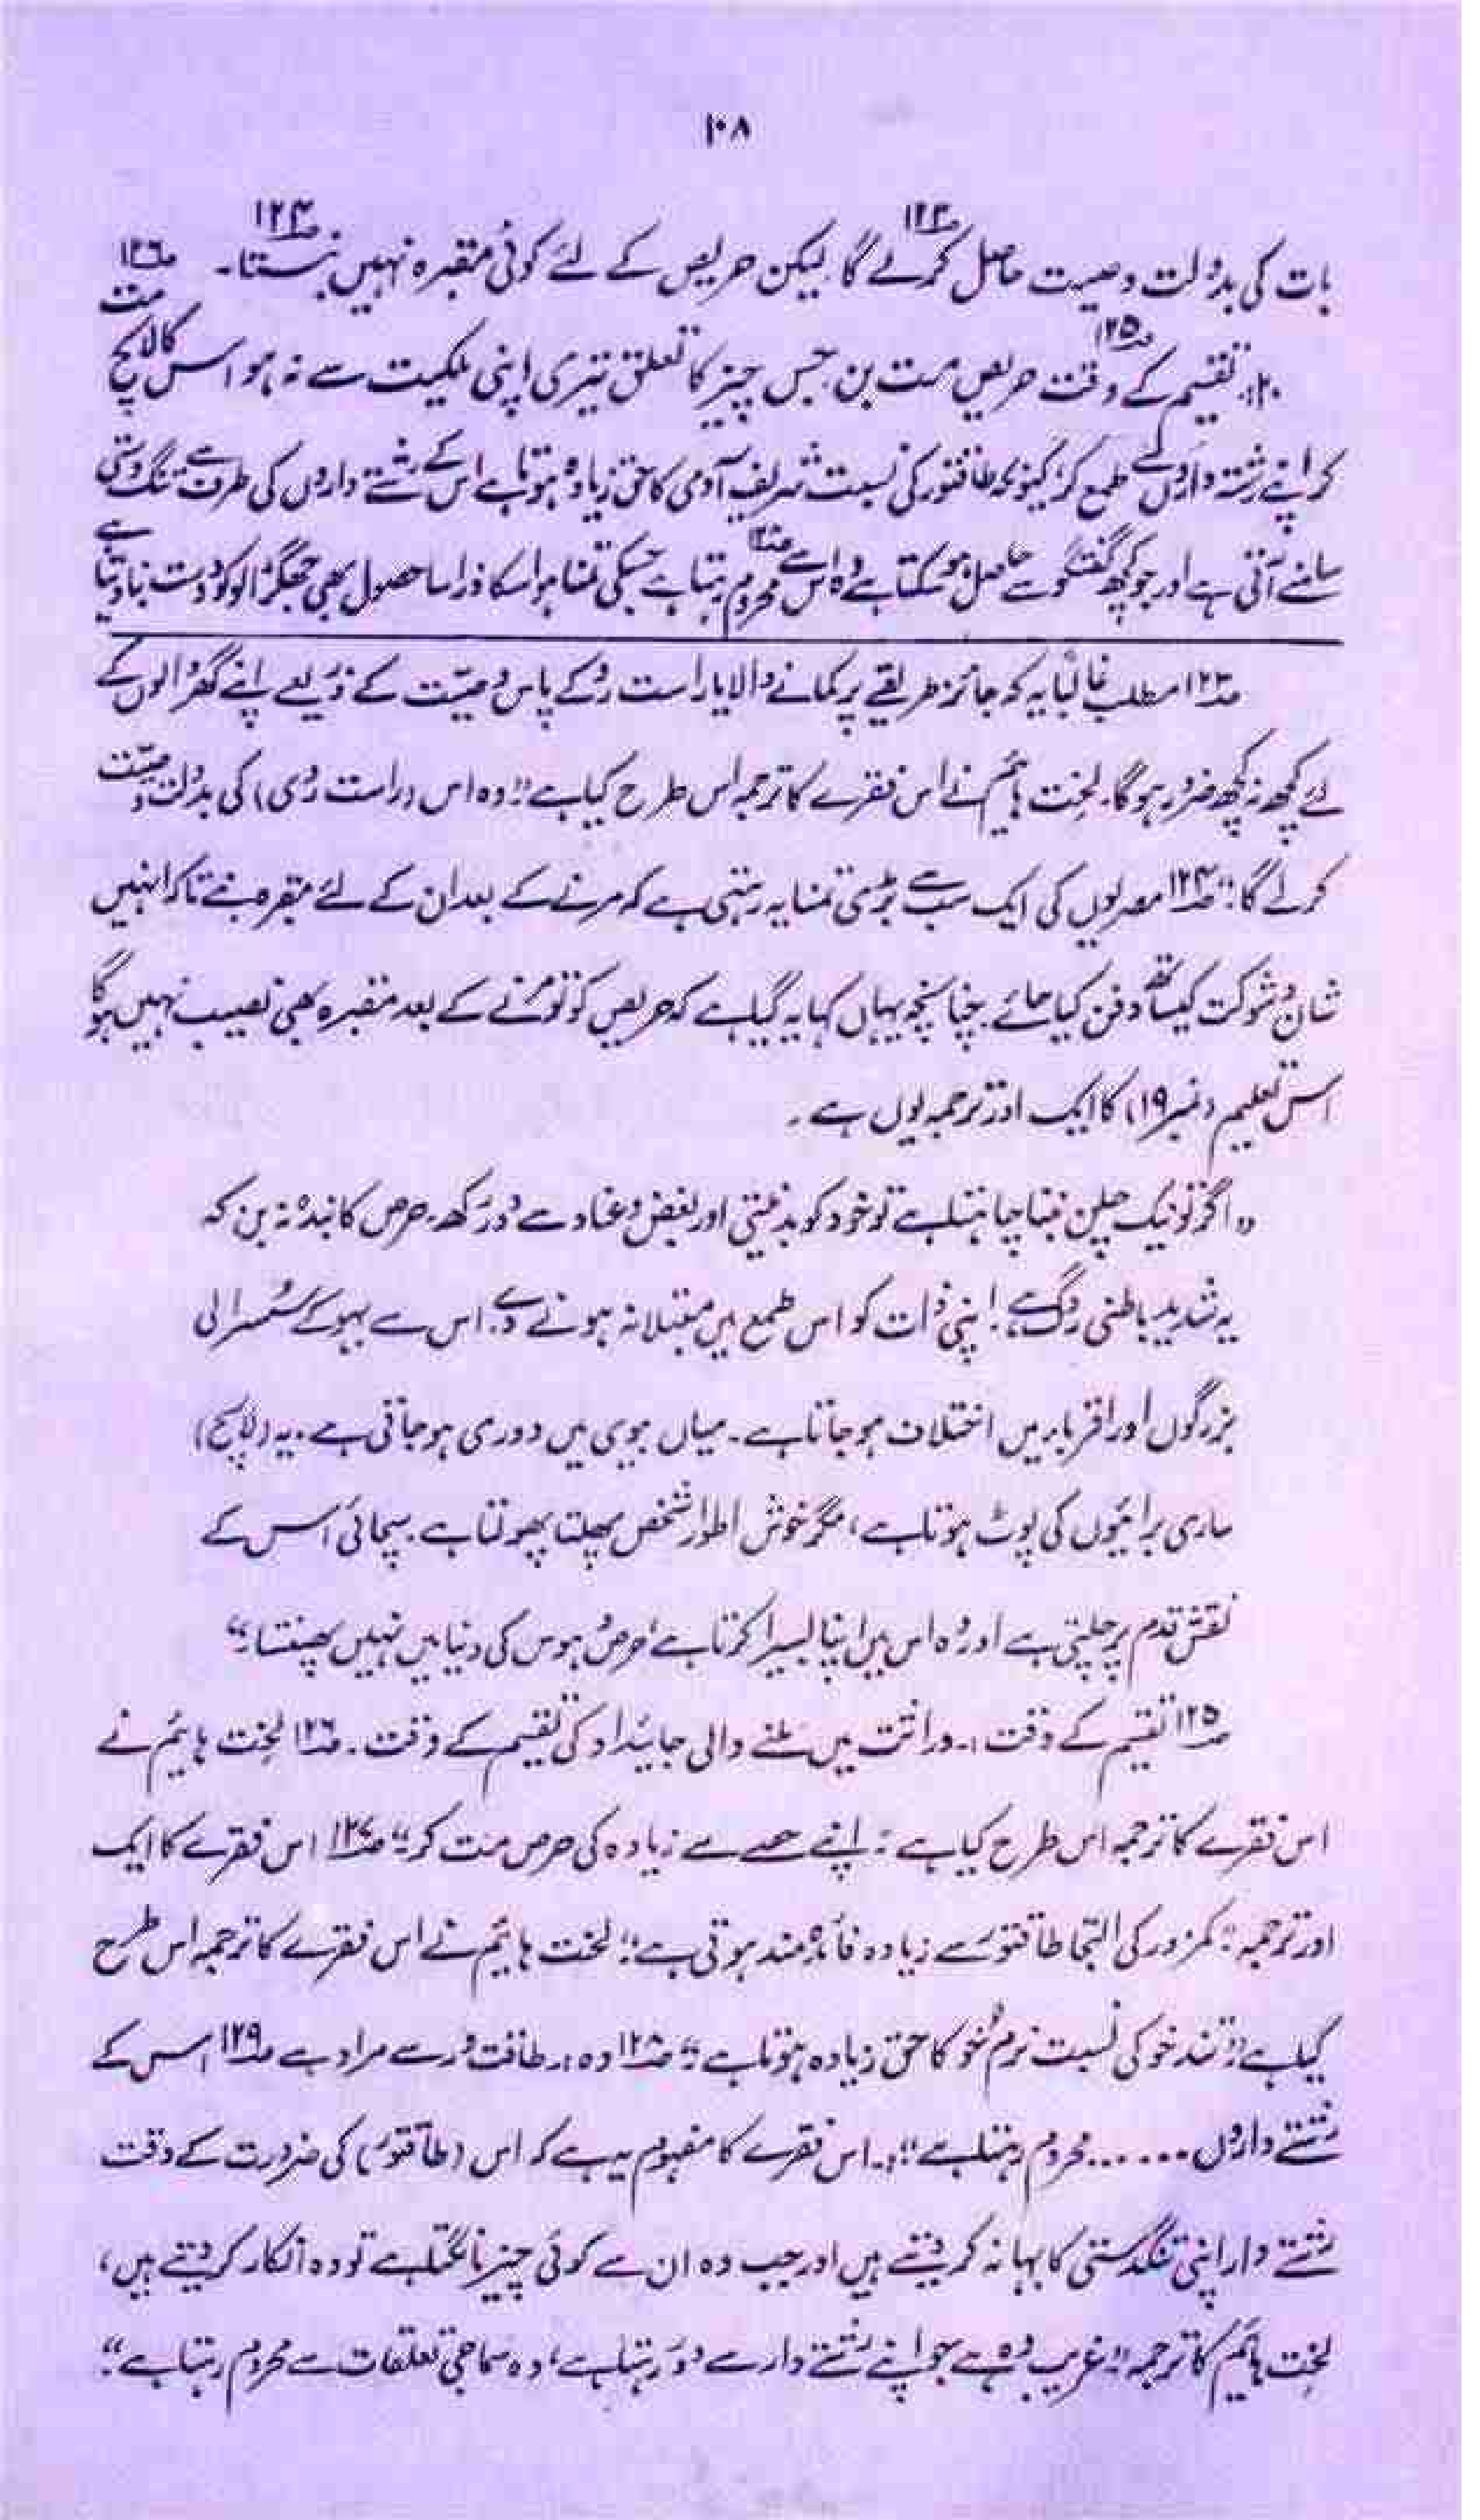 ۱۰۸
بات کی بدولت وصیت حاصل کرلے گا ۱۲۳ لیکن حریص کے لئے کوئی مقبرہ نہیں بنتا۔ ۱۲۴
۲۰:۔ تقسیم کے وقت ۱۲۵ حریص مت بن۔ جس چیز کا تعلق تیری اپنی ملکیت سے نہ ہو اس کا لالچ مت ۱۲۶
کر اپنے رشتہ داروں کے لئے طمع کر کیونکہ طاقتور کی نسبت شریف آدمی کا حق زیادہ ہوتا ہے اس کے رشتے داروں کی طرف سے تنگ دستی
سامنے آتی ہے اور جو کچھ گفتگو سے حاصل ہو سکتا ہے وہ ۱۲۸ اس سے محروم رہتا ہے جسکی تمنا ہو اسکا ذرا سا حصول بھی جھگڑالو کو دوست بنا دیتا ہے
۱۲۳ مطلب غالباً یہ کہ جائز طریقے پر کمانے والا یا راست رو کے پاس وصیّت کے ذریعے اپنے گھر والوں کے
لئے کچھ نہ کچھ ضرور ہوگا۔ لخت ہائیم نے اس فقرے کا ترجمہ اس طرح کیا ہے "وہ اس (راست روی) کی بدولت وصیّت
کرلے گا"۔ ۱۲۴ مصریوں کی ایک سب سے بڑی تمنا یہ رہتی ہے کہ مرنے کے بعد ان کے لئے مقبرہ بنے تاکہ انہیں
شان و شوکت کیساتھ دفن کیا جائے۔ چنانچہ یہاں کہا یہ گیا ہے کہ حریص کو تو مرنے کے بعد مقبرہ بھی نصیب نہیں ہوگا
اس تعلیم (نمبر ۱۹) کا ایک اور ترجمہ یوں ہے۔
"اگر تو نیک چلن بننا چاہتا ہے تو خود کو بدنیتی اور بغض و عناد سے دور رکھ۔ حرص کا بندہ نہ بن کہ
یہ شدید باطنی روگ ہے! اپنی ذات کو اس طمع میں مبتلا نہ ہونے دے۔ اس سے بہو کے سُسرالی
بزرگوں اور اقربا میں اختلاف ہو جاتا ہے۔ میاں بیوی میں دوری ہو جاتی ہے۔ یہ (لالچ)
ساری برائیوں کی پوٹ ہوتا ہے، مگر خوش اطوار شخص پھلتا پھولتا ہے۔ سچائی اس کے
نقش قدم پر چلتی ہے اور وہ اس میں اپنا بسیرا کرتا ہے، حرص و ہوس کی دنیا میں نہیں پھنستا۔"
۱۲۵ تقسیم کے وقت:۔ وراثت میں ملنے والی جائیداد کی تقسیم کے وقت۔ ۱۲۶ لخت ہائیم نے
اس فقرے کا ترجمہ اس طرح کیا ہے: اپنے حصے سے زیادہ کی حرص مت کر" ۱۲۷ اس فقرے کا ایک
اور ترجمہ: "کمزور کی التجا طاقتور سے زیادہ فائدہ مند ہوتی ہے"! لخت ہائیم نے اس فقرے کا ترجمہ اس طرح
کیا ہے: "تند خو کی نسبت نرم خو کا حق زیادہ ہوتا ہے" ۱۲۸ وہ:۔ طاقت ور سے مراد ہے ۱۲۹ اس کے
رشتے داروں ...... محروم رہتا ہے":۔ اس فقرے کا مفہوم یہ ہے کہ اس (طاقتور) کی ضرورت کے وقت
رشتے دار اپنی تنگدستی کا بہانہ کر دیتے ہیں اور جب وہ ان سے کوئی چیز مانگتا ہے تو وہ انکار کر دیتے ہیں،
لخت ہائیم کا ترجمہ: "غریب وہ ہے جو اپنے رشتے دار سے دور رہتا ہے، وہ سماجی تعلقات سے محروم رہتا ہے"۔